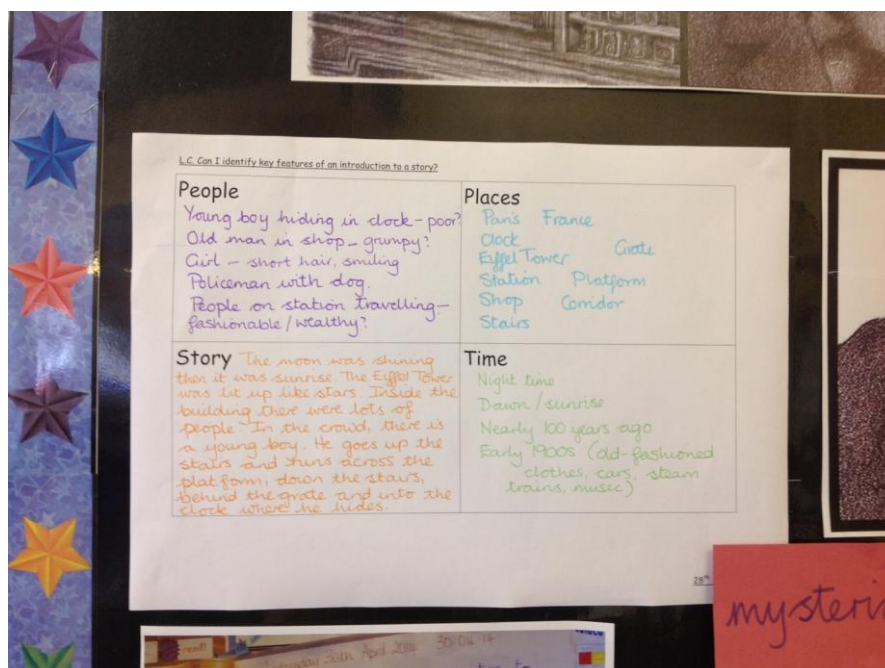 L.C. Can I identify key features of an introduction to a story?
People
Young boy hiding in clock - poor?
Old man in shop - grumpy?
Girl - short hair, smiling
Policeman with dog.
People on station travelling -
fashionable / wealthy?
Places
Paris France
Clock
Grate
Eiffel Tower
Station Platform
Shop Corridor
Stairs
Story The moon was shining
then it was sunrise. The Eiffel Tower
was lit up like stars. Inside the
building there were lots of
people. In the crowd, there is
a young boy. He goes up the
stairs and runs across the
platform, down the stairs,
behind the grate and into the
clock where he hides.
Time
Night time
Dawn / sunrise
Nearly 100 years ago
Early 1900s (old-fashioned
clothes, cars, steam
trains, music)
28th
mysteri
read!
30th April 2014 30.04.14